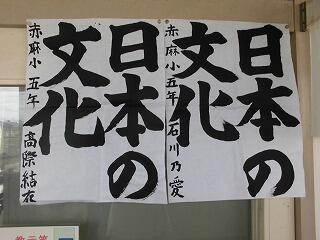 日本の
文化
赤麻小五年 石川乃愛
日本の
文化
赤麻小五年 高際結在